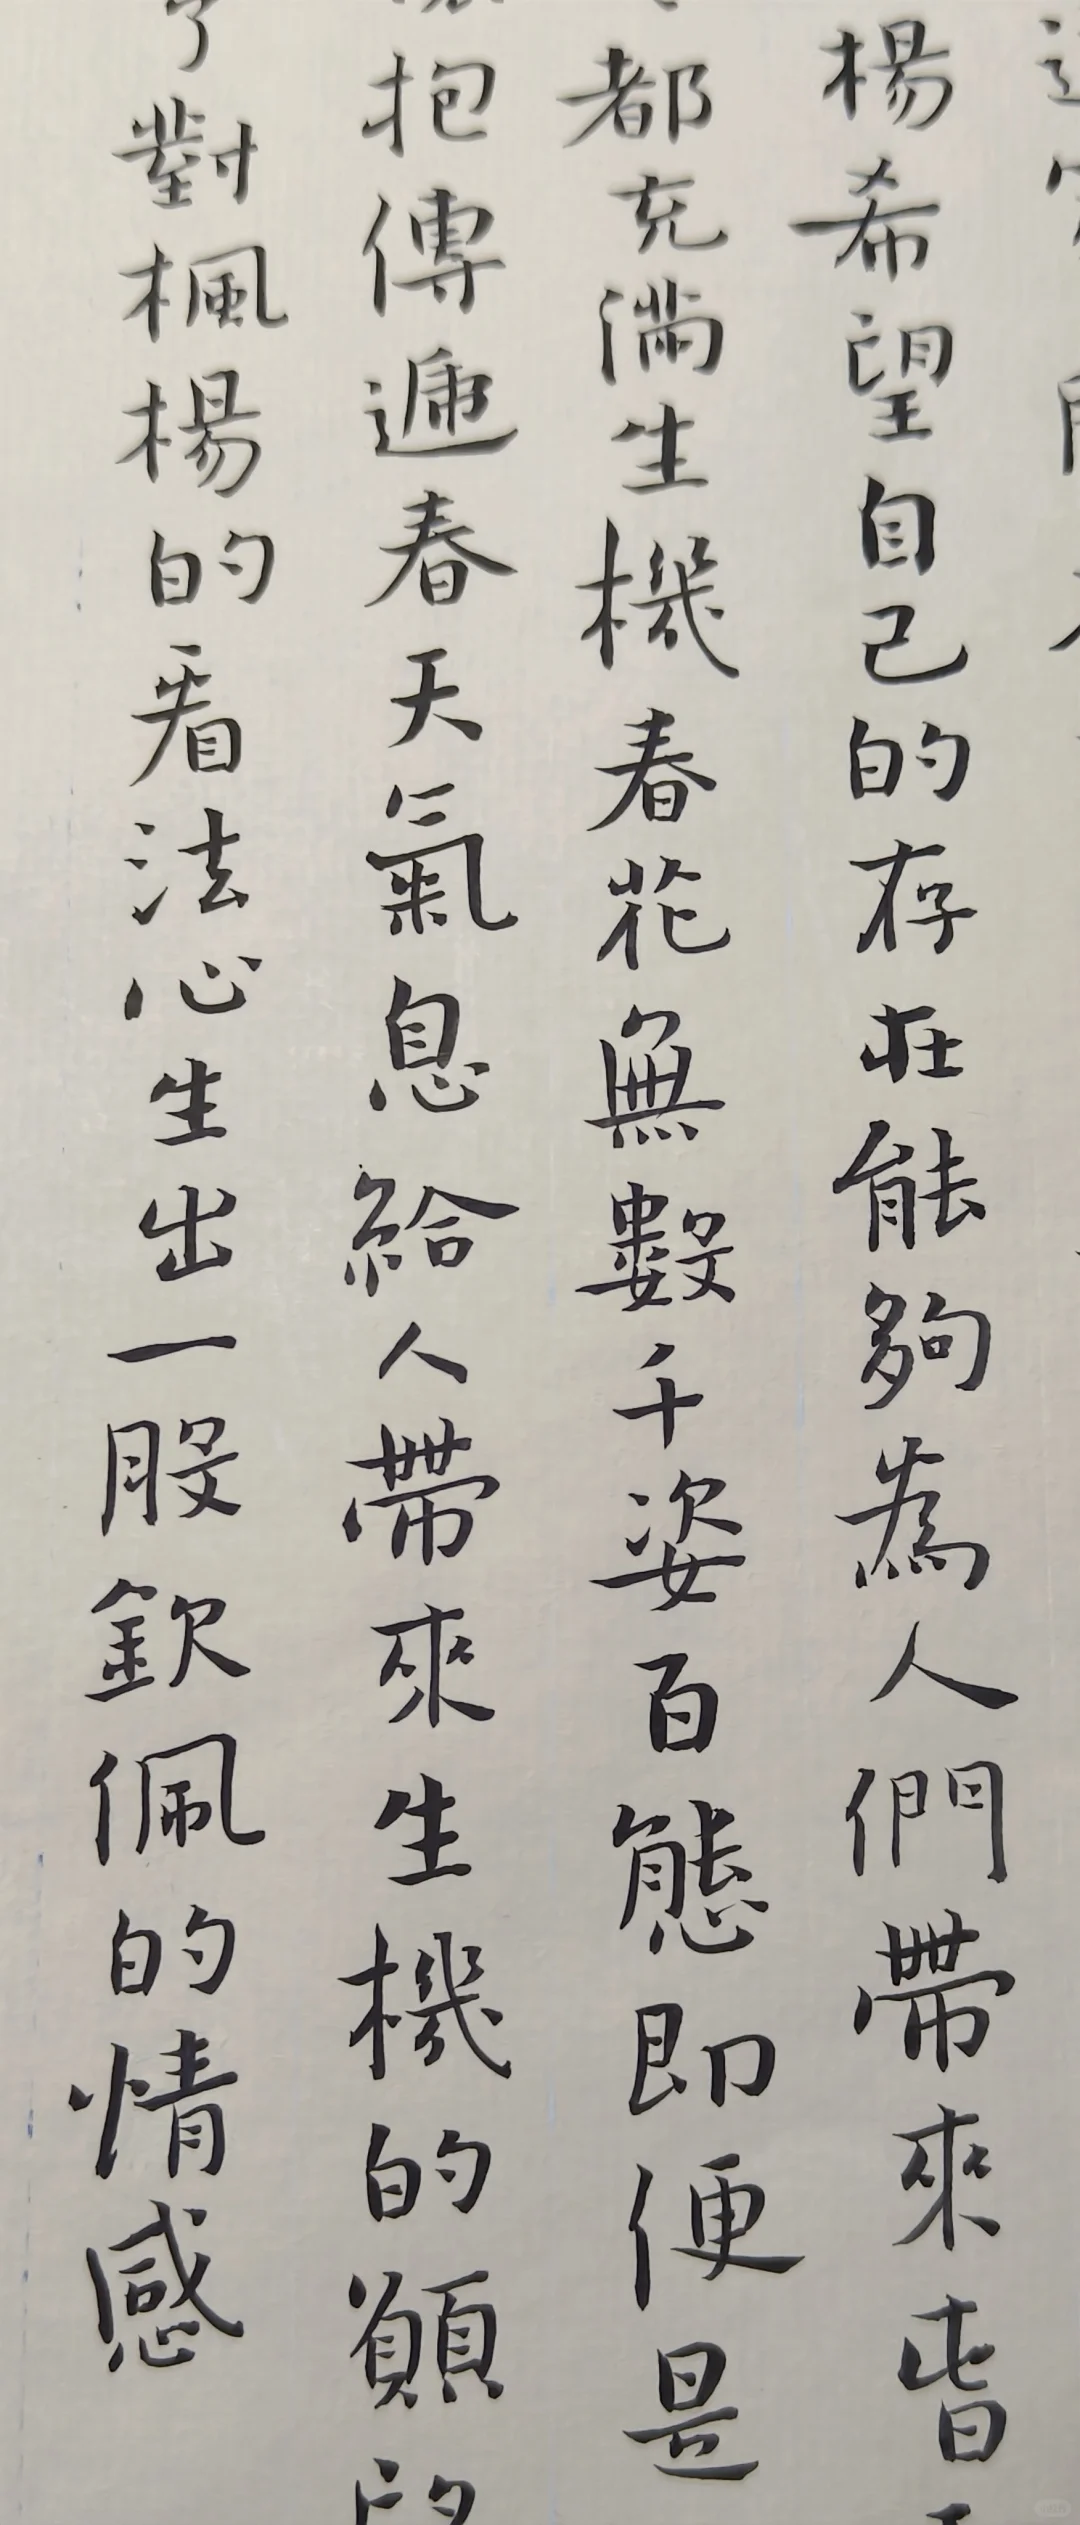 楊希望自己的存在能夠為人們帶來皆
都充滿生機春花無數千姿百態即便是
抱傳遞春天氣息給人帶來生機的願
對楓楊的看法心生出一股欽佩的情感